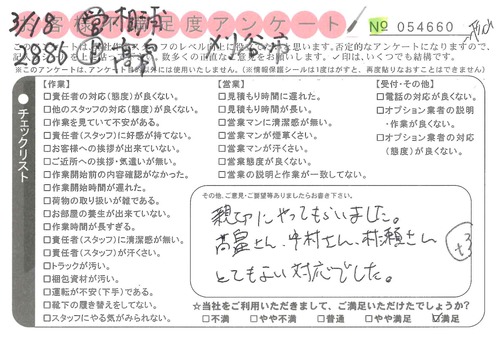 3/18
2886
お客様不満足度アンケート
No 054660
※このアンケートは、アンケート以外には使用いたしません。(※情報保護シールは1度はがすと、再度貼りなおすことはできません)
チェックリスト
【作業】
□責任者の対応(態度)が良くない。
□他のスタッフの対応(態度)が良くない。
□作業を見ていて不安がある。
□責任者(スタッフ)に好感が持てない。
□お客様への挨拶が出来ていない。
□ご近所への挨拶・気遣いが無い。
□作業開始前の内容確認がなかった。
□作業開始時間が遅れた。
□荷物の取り扱いが雑である。
□お部屋の養生が出来ていない。
□作業時間が長すぎる。
□責任者(スタッフ)に清潔感が無い。
□責任者(スタッフ)が汗くさい。
□トラックが汚い。
□梱包資材が汚い。
□運転が不安(下手)である。
□靴下の履き替えをしてない。
□スタッフにやる気がみられない。
【営業】
□見積もり時間に遅れた。
□見積もり時間が長い。
□営業マンに清潔感が無い。
□営業マンが煙草くさい。
□営業マンが汗くさい。
□営業態度が良くない。
□営業の説明と作業が一致してない。
【受付・その他】
□電話の対応が良くない。
□オプション業者の説明・作業が良くない。
□オプション業者の対応(態度)が良くない。
その他、ご意見・ご要望等ありましたらお書き下さい。
親切にやってもらいました。
高畠さん、中村さん、村瀬さん
とてもよい対応でした。
☆当社をご利用いただきまして、ご満足いただけたでしょうか？
□不満 □やや不満 □普通 □やや満足 ☑満足